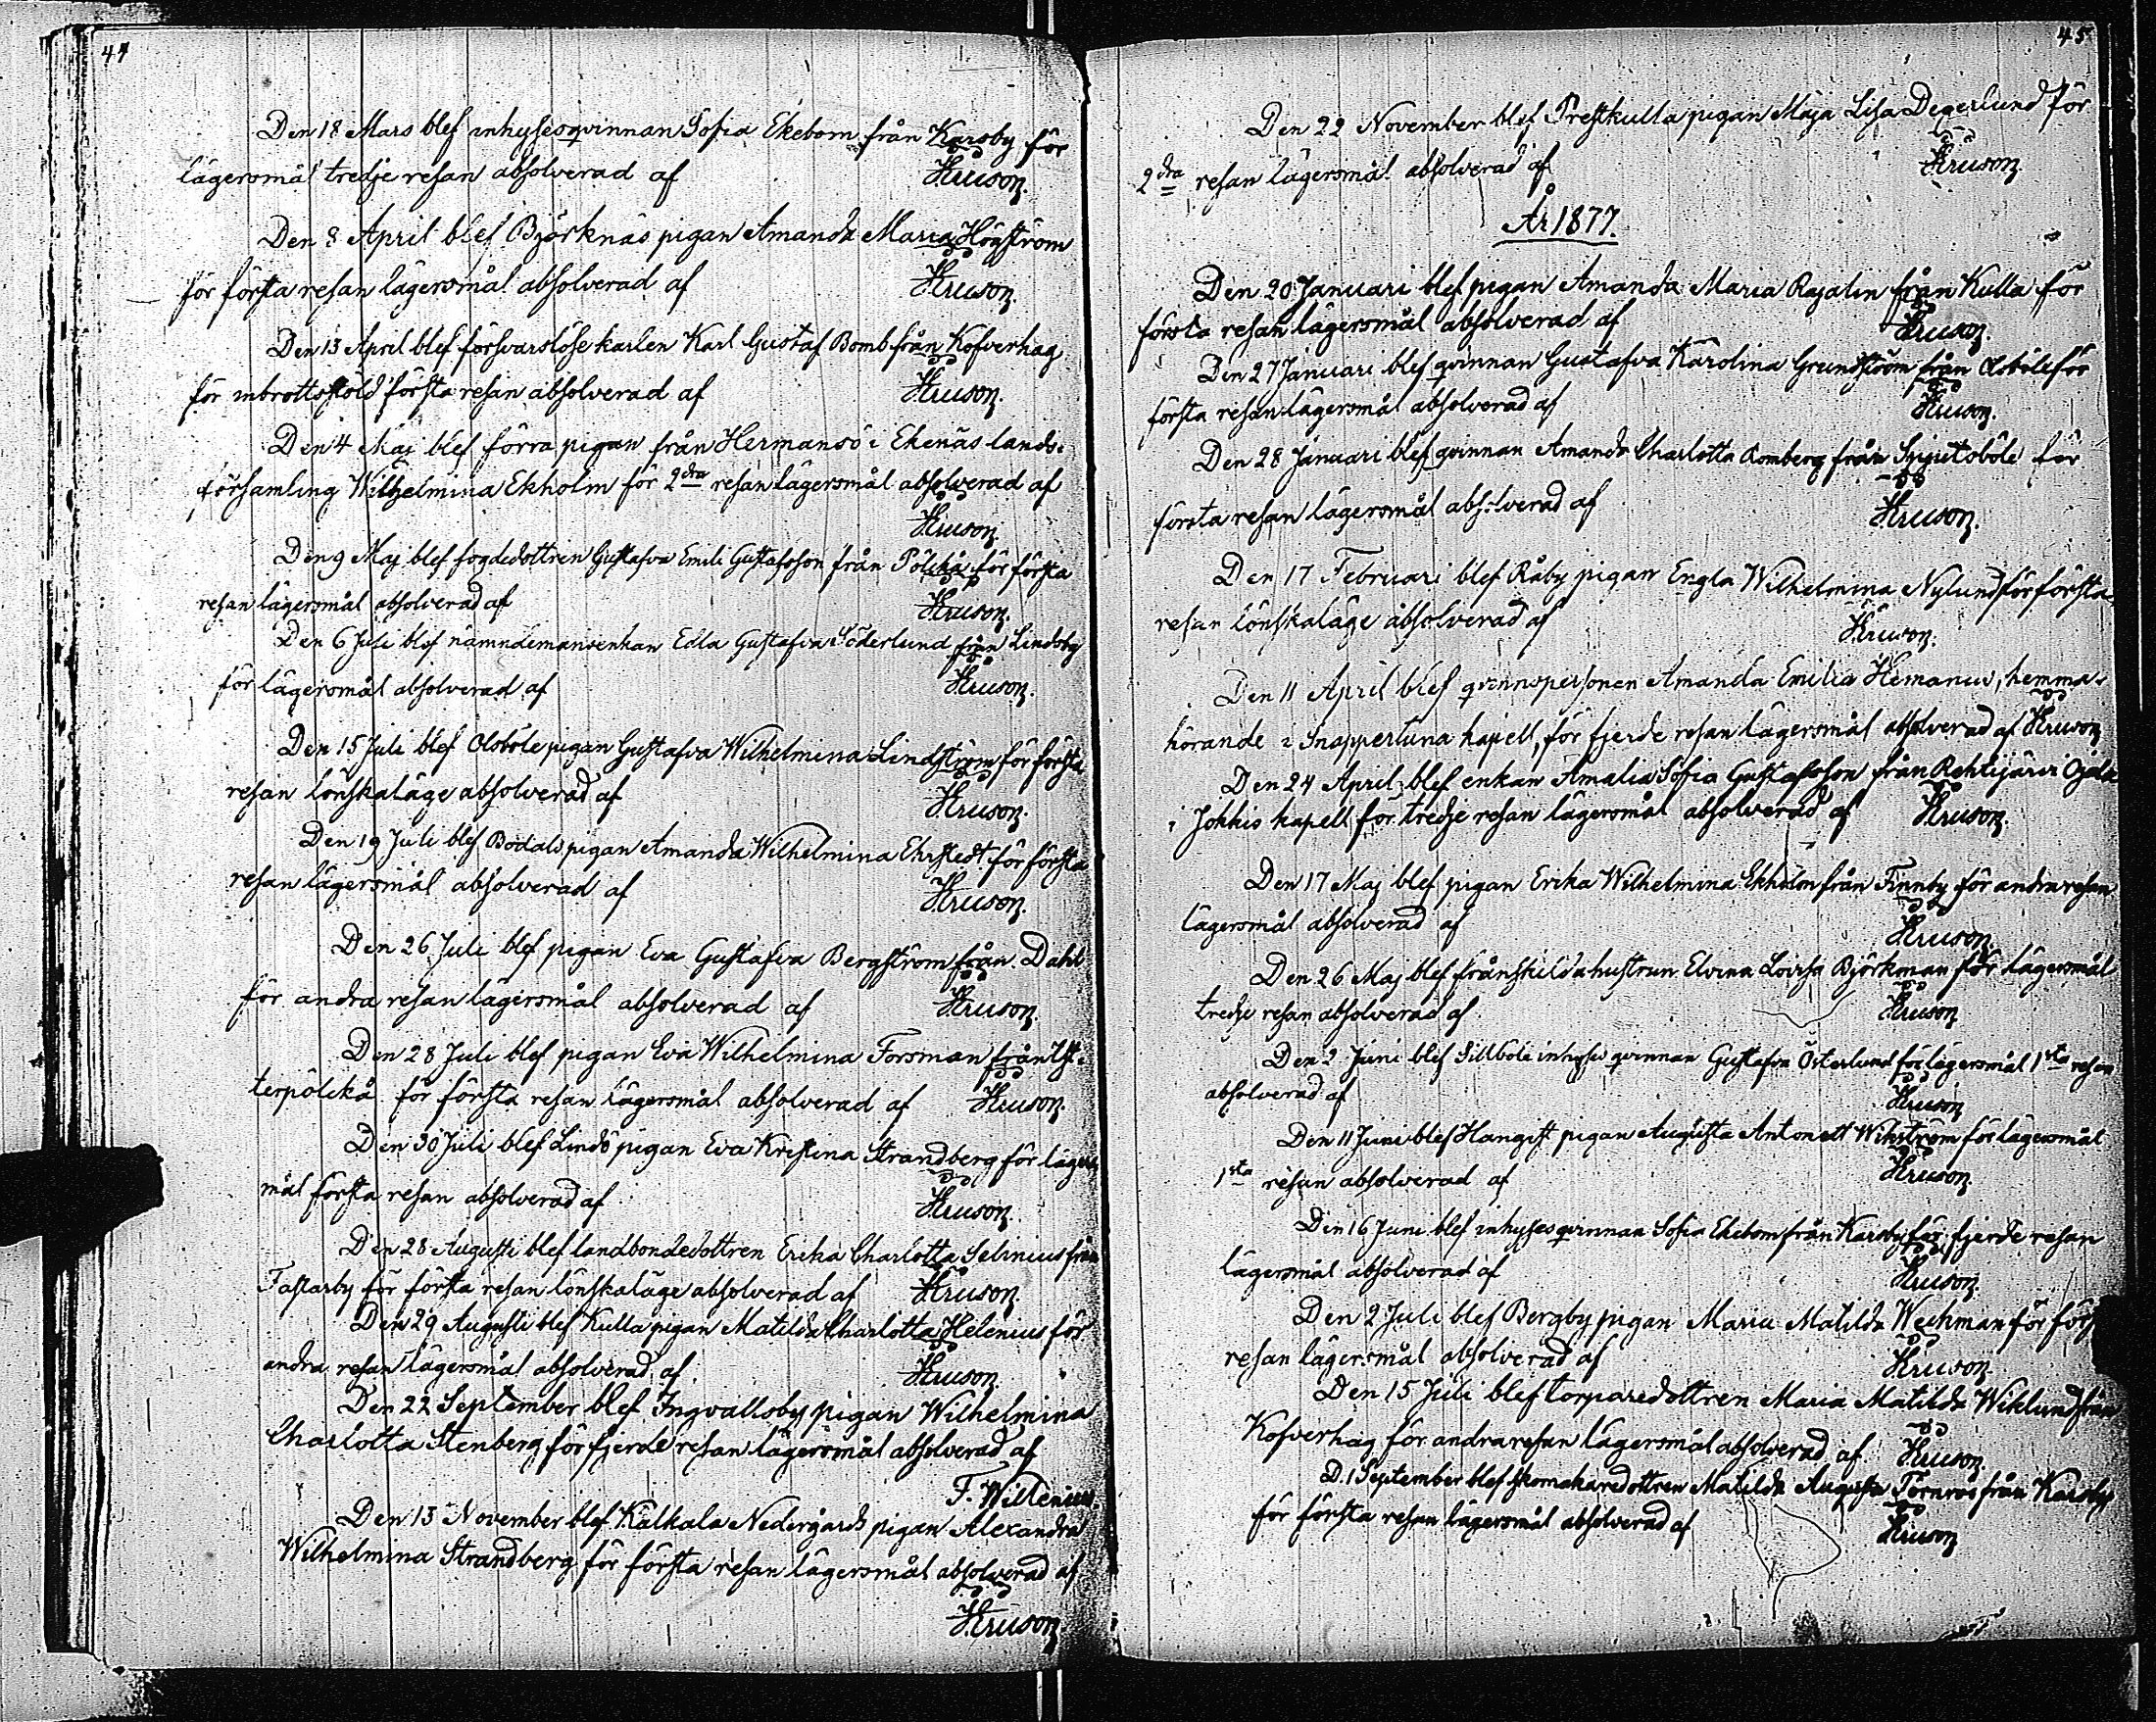 44
Den 18 Mars blef inhysesqvinnan Sofia Ekebom från Karsby för
lägersmål tredje resan absolverad af
Den 8 April blef Björknäs pigan Amanda Maria Högström
för första resan lägersmål absolverad af
Den 13 April blef försvarslöse karlen Karl Gustaf Bomb från Kofverhag
för inbrottsstöld första resan absolverad af
Den 4 Maj blef förra pigan från Hermansö i Ekenäs lands-
församling Wilhelmina Ekholm för 2dra resan lägersmål absolverad af
Den 9 Maj blef fogdedottren Gustafva Emili Gustafsson från Pölckå för första
resan lägersmål absolverad af
Den 6 Juli blef nämndemansenkan Edla Gustafva Söderlund från Lindsby
för lägersmål absolverad af
Den 15 Juli blef Olsböle pigan Gustafva Wilhelmina Lindström för första
resan lönskaläge absolverad af
Den 19 Juli blef Bodals pigan Amanda Wilhelmina Ehrstedt för första
resan lägersmål absolverad af
Den 26 Juli blef pigan Eva Gustafva Bergström från Dahl
för andra resan lägersmål absolverad af
Den 28 Juli blef pigan Eva Wilhelmina Forsman från
terpölckå för första resan lägersmål absolverad af
Den 30 Juli blef Lindö pigan Eva Kristina Strandberg för lägers
mål första resan absolverad af
Den 28 Augusti blef landbondedottren Erika Charlotta Selinius från
Fastarby för första resan lönskaläge absolverad af
Den 29 Augusti blef Kulla pigan Matilda Charlotta Helenius för
andra resan lägersmål absolverad af
Den 22 September blef Ingvallsby pigan Wilhelmina
Charlotta Stenberg för fjerde resan lägersmål absolverad af
F. Willenius.
Den 13 November blef Kälkala Nedergårds pigan Alexandra
Wilhelmina Strandberg för första resan lägersmål absolverad af
45
Den 22 November blef Prestkulla pigan Maja Lisa Degerlund för
2dra resan lägersmål absolverad af
År 1877.
Den 20 Januari blef pigan Amanda Maria Rajalin från Kulla för
första resan lägersmål absolverad af
Den 27 Januari blef qvinnan Gustafva Karolina Grundström från Olsböle för
första resan lägersmål absolverad af
Den 28 Januari blef qvinnan Amanda Charlotta Romberg från för
första resan lägersmål absolverad af
Den 17 Februari blef Råby pigan Engla Wilhelmina Nylund för första
resan lönskaläge absolverad af
Den 11 April blef qvinnspersonen Amanda Emilia Hemanus, hemma-
hörande i Snappertuna kapell, för fjerde resan lägersmål absolverad af
Den 24 April blef enkan Amalia Sofia Gustafsson från Rehtijärvi
i Jokkis kapell för tredje resan lägersmål absolverad af
Den 17 Maj blef pigan Erika Wilhelmina Ekholm från Finnby för andra resan
lägersmål absolverad af
Den 26 Maj blef frånskilda hustrun Elvina Lovisa Björkman för lägersmål
tredje resan absolverad af
Den 2 Juni blef Sillböle inhyses qvinnan Gustafva Österlund för lägersmål 1sta resan
absolverad af
Den 11 Juni blef Hangist pigan Augusta Antonett Wikström för lägersmål
1sta resan absolverad af
Den 16 Juni blef inhyses qvinnan Sofia Ekebom från Karsby för fjerde resan
lägersmål absolverad af
Den 2 Juli blef Bergby pigan Maria Matilda Weckman för förs
resan lägersmål absolverad af
Den 15 Juli blef torparedottren Maria Matilda Wiklund från
Kofverhag för andra resan lägersmål absolverad af
D. 1 September blef skomakaredottren Matilda Augusta Törnroos från Karsby
för första resan lägersmål absolverad af